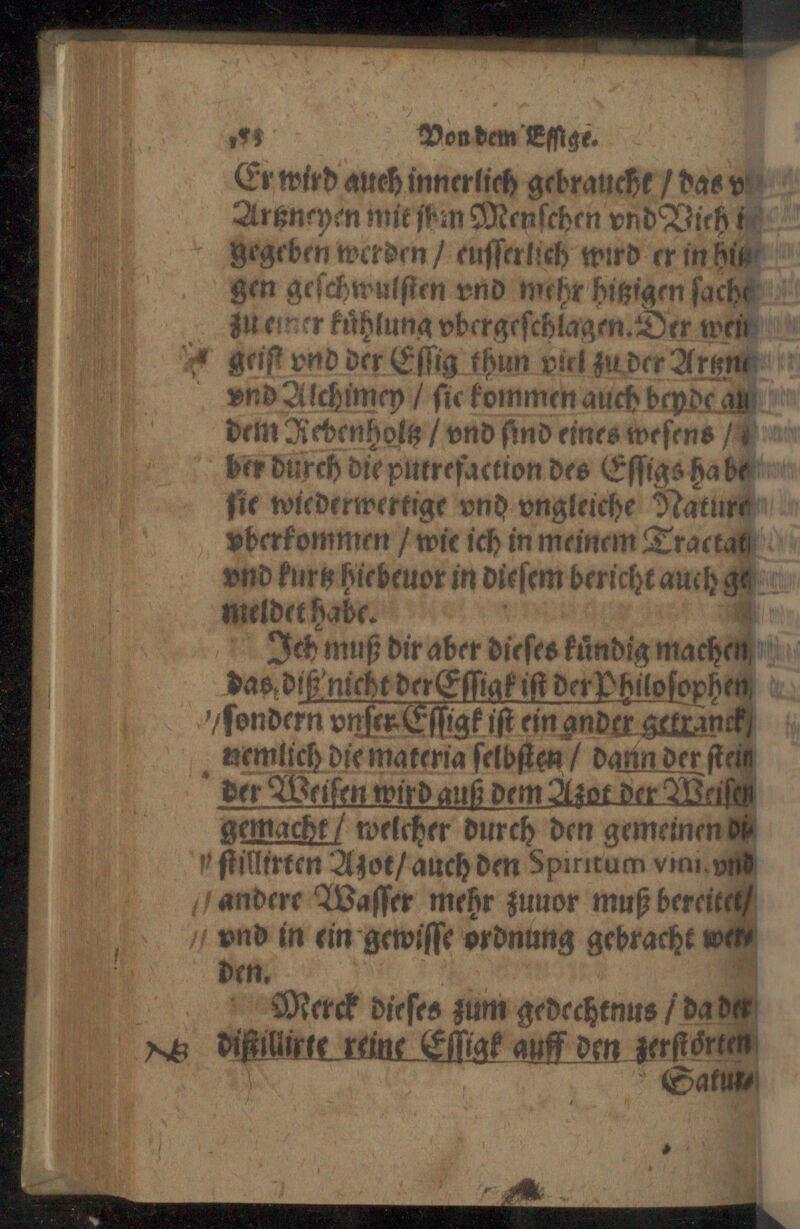 Von dem Eſſige.
Er wird auch innerlich gebraucht / das
Artzneyen mit jhm Menſchen vnd Vieh
gegeben werden / euſſerlich wird er in
gen geſchwulſten vnd mehr hitzigen
zu einer kuͤhlung vbergeſchlagen. Der
geiſt vnd der Eſſig thun viel zu der
vnd Alchimey / ſie kommen auch beyde
dem Rebenholtz / vnd ſind eines weſens /
ber durch die putrefaction des Eſſigs
ſie wiederwertige vnd vngleiche
vberkommen / wie ich in meinem
vnd kurtz hiebeuor in dieſem bericht auch
meldet habe.
Ich muß dir aber dieſes kuͤndig machen
das diß nicht der Eſſigk iſt der Philoſophen
ſondern vnſer Eſſigk iſt ein ander getranck
nemlich die materia ſelbſten / dann der ſtein
der Weiſen wird auß dem Azot der Weiſen
gemacht / welcher durch den gemeinen
ſtillirten Azot / auch den Spiritum vini, vnd
andere Waſſer mehr zuuor muß bereitet /
vnd in ein gewiſſe ordnung gebracht wer⸗
den.
Merck dieſes zum gedechtnus / da der
NB diſtillirte reine Eſſigk auff den zerſtoͤrten
Satur⸗